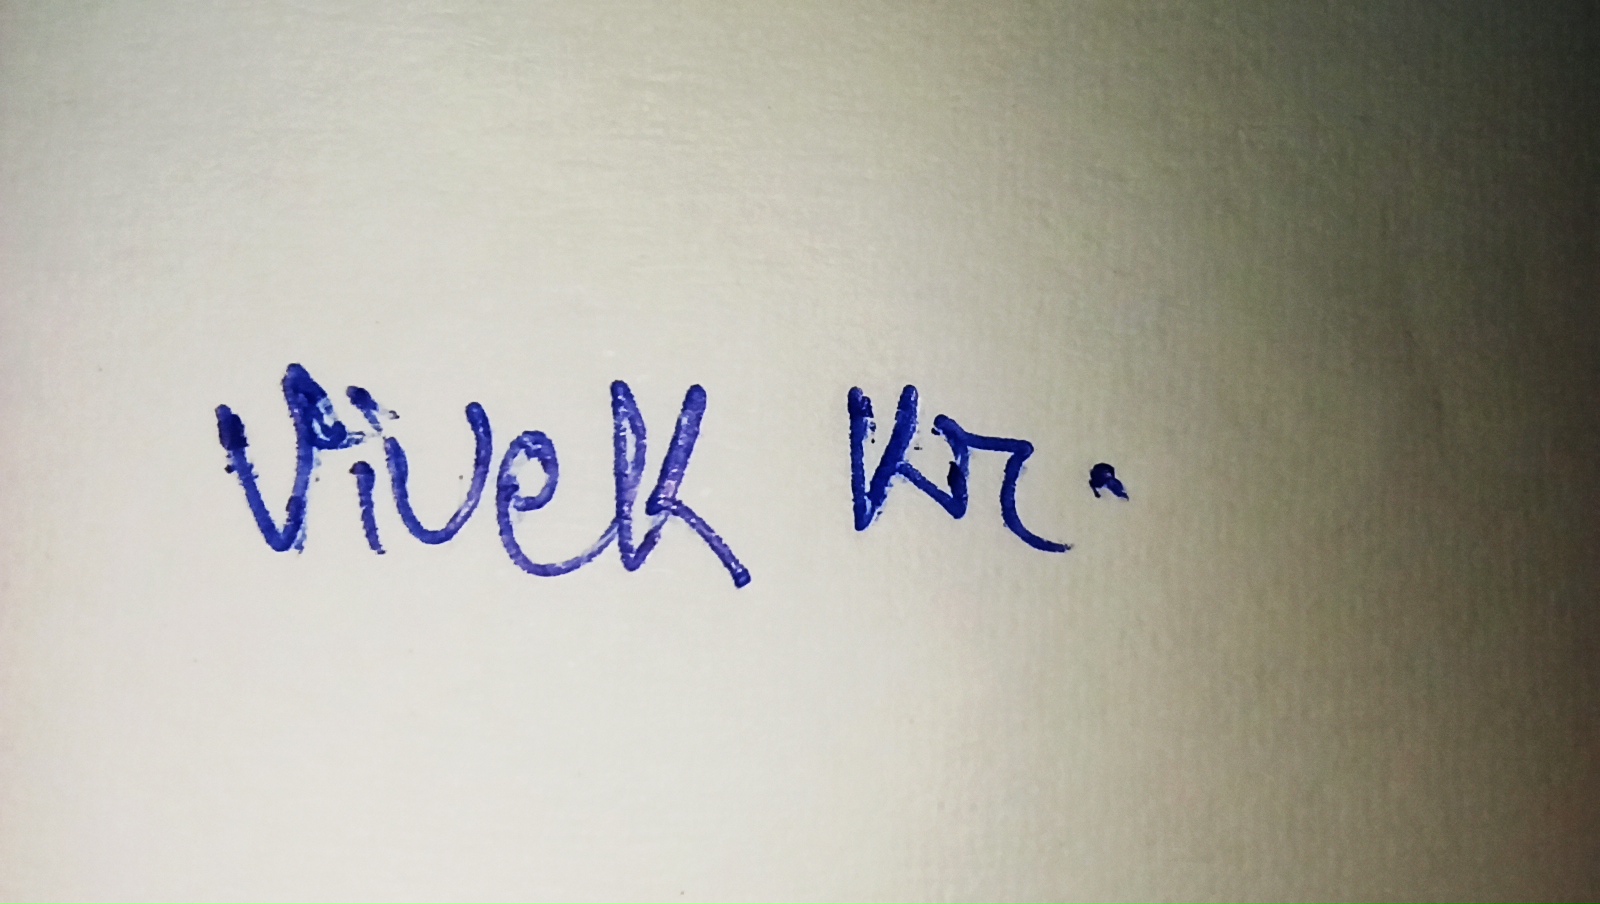 Vivek Kr.